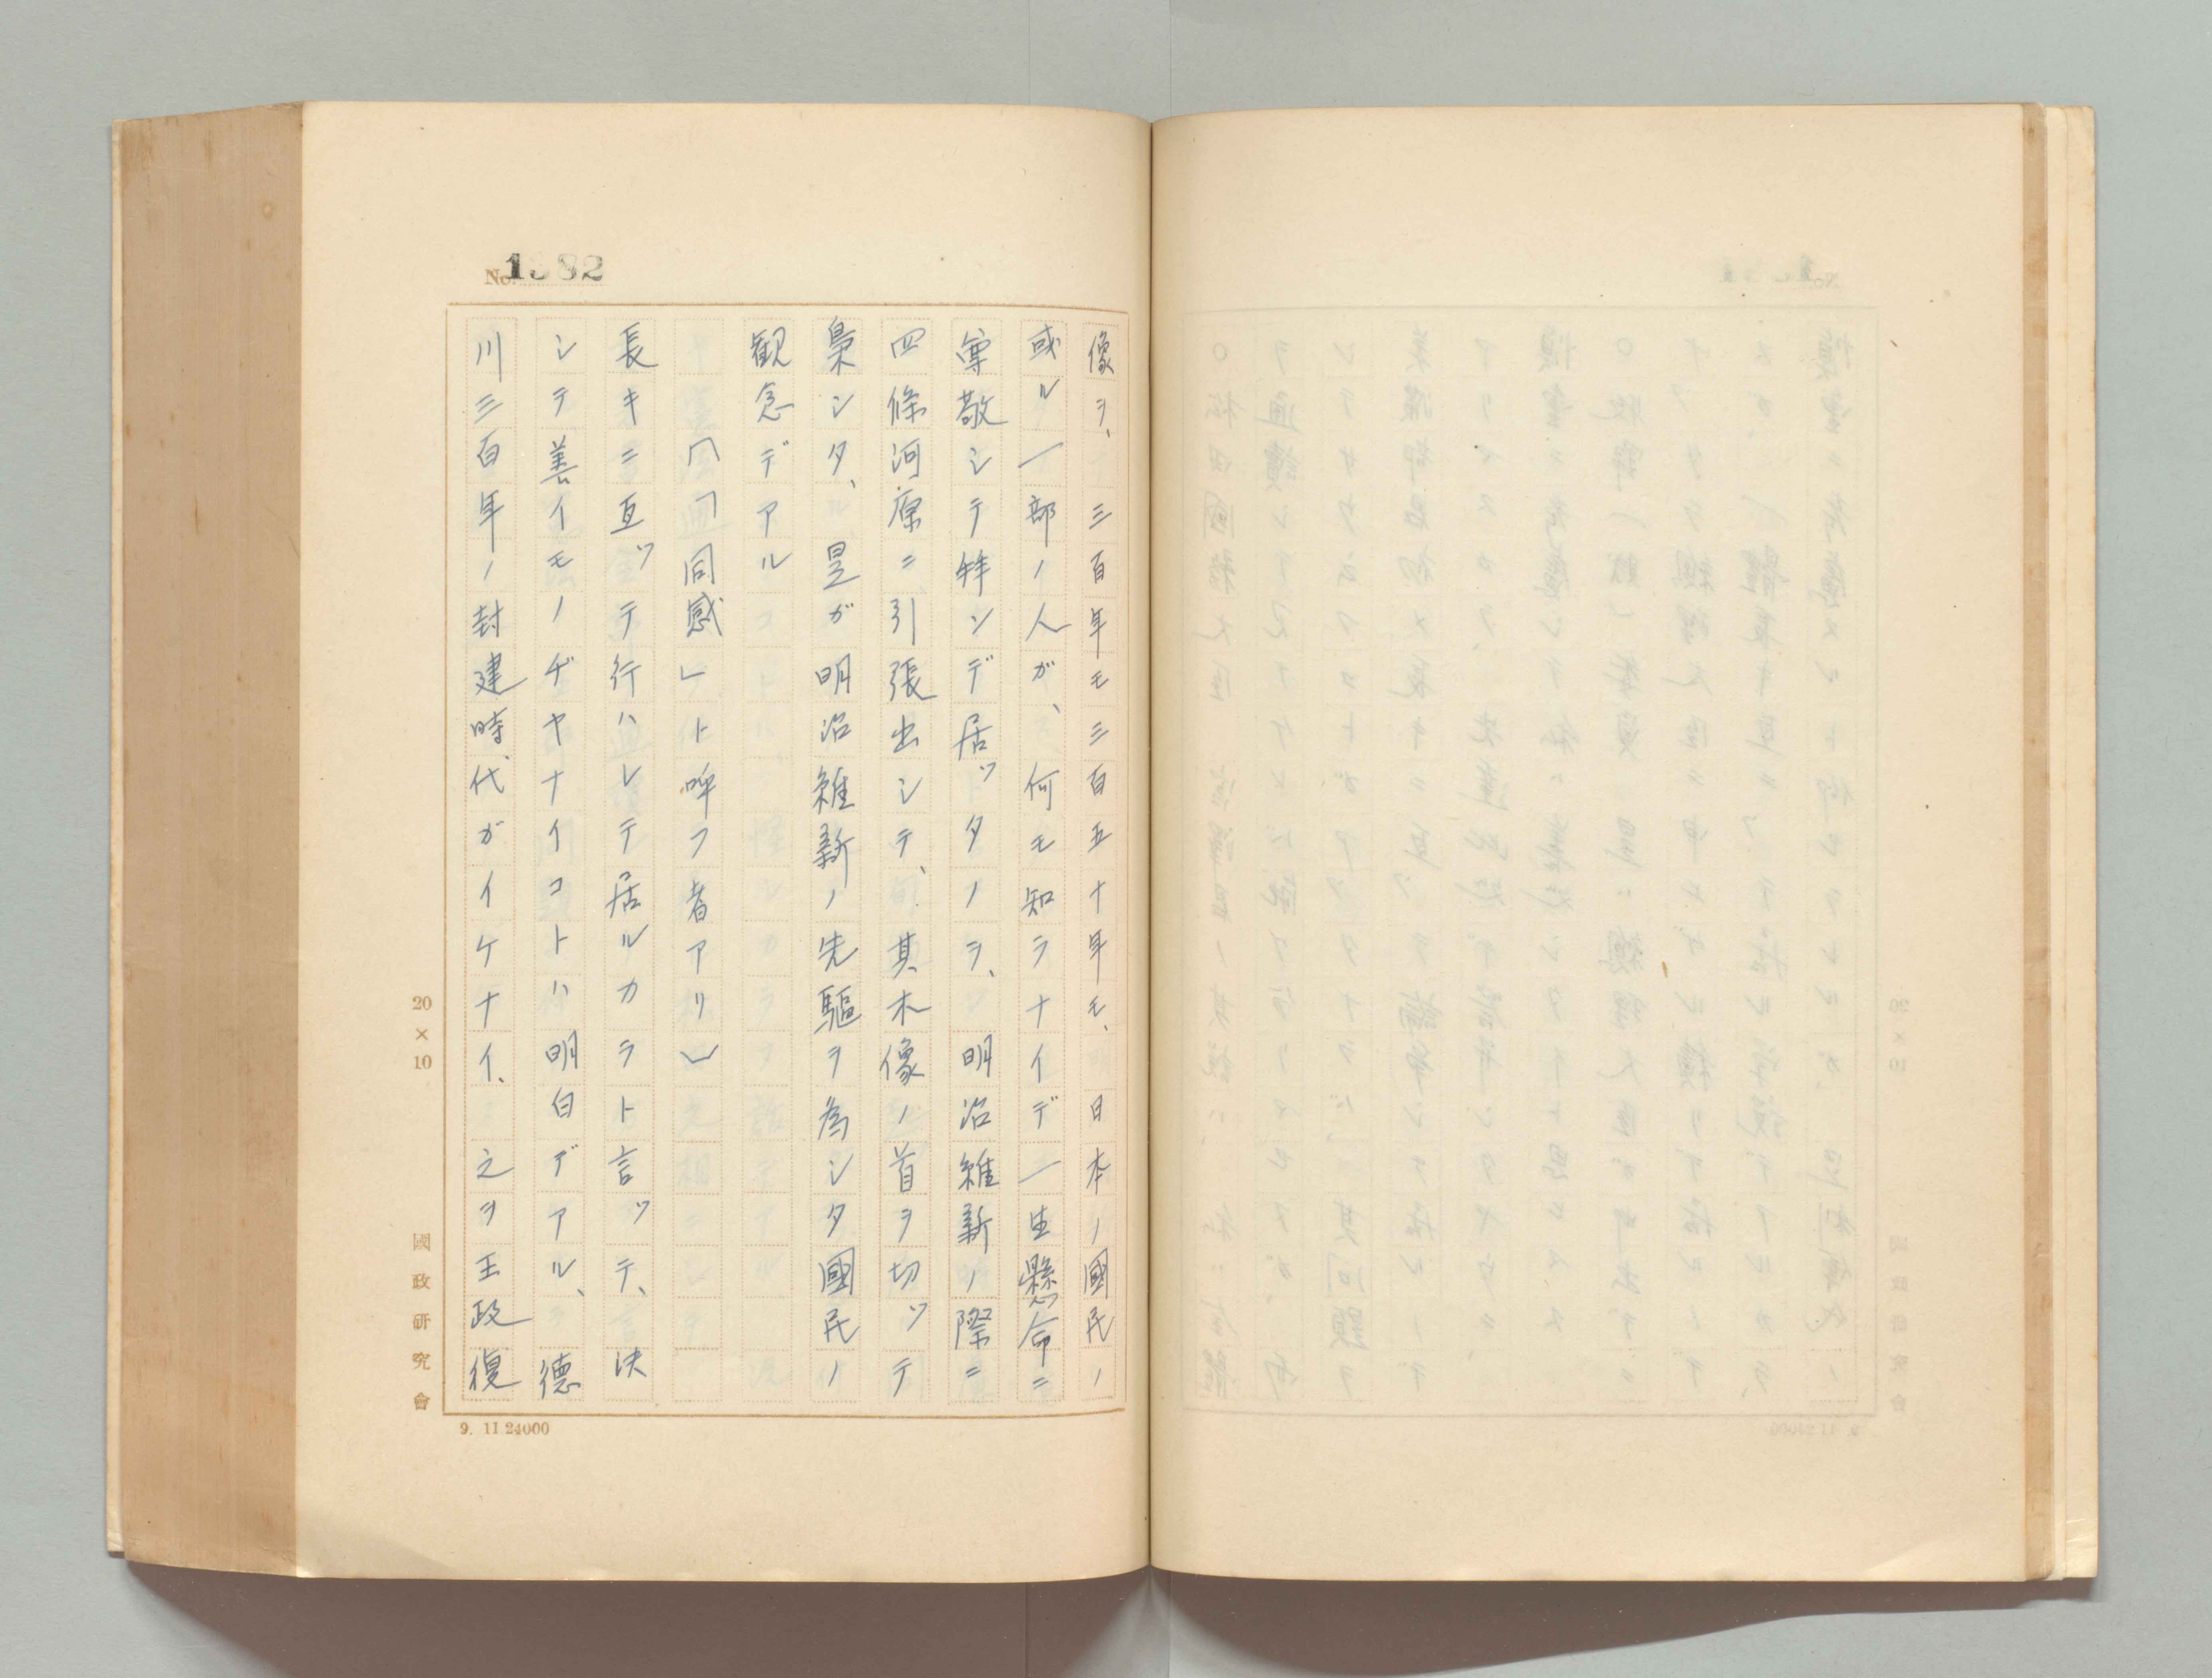 No. 1382
像ヲ、三百年モ三百五十年モ、日本ノ國民ノ
或ル一部ノ人ガ、何モ知ラナイデ一生懸命ニ
尊敬シテ拝ンデ居ツタノヲ、明治維新ノ際ニ
四條河原ニ引張出シテ、其木像ノ首ヲ切ツテ
梟シタ、是ガ明治維新ノ先驅ヲ為シタ國民ノ
観念デアル
(「同感」ト呼フ者アリ)
長キニ亙ツテ行ハレテ居ルカラト言ツテ、決
シテ善イモノヂヤナイコトハ明白デアル、德
川三百年ノ封建時代ガイケナイ、之ヲ王政復
20×10
國政研究會
9. 11.24000